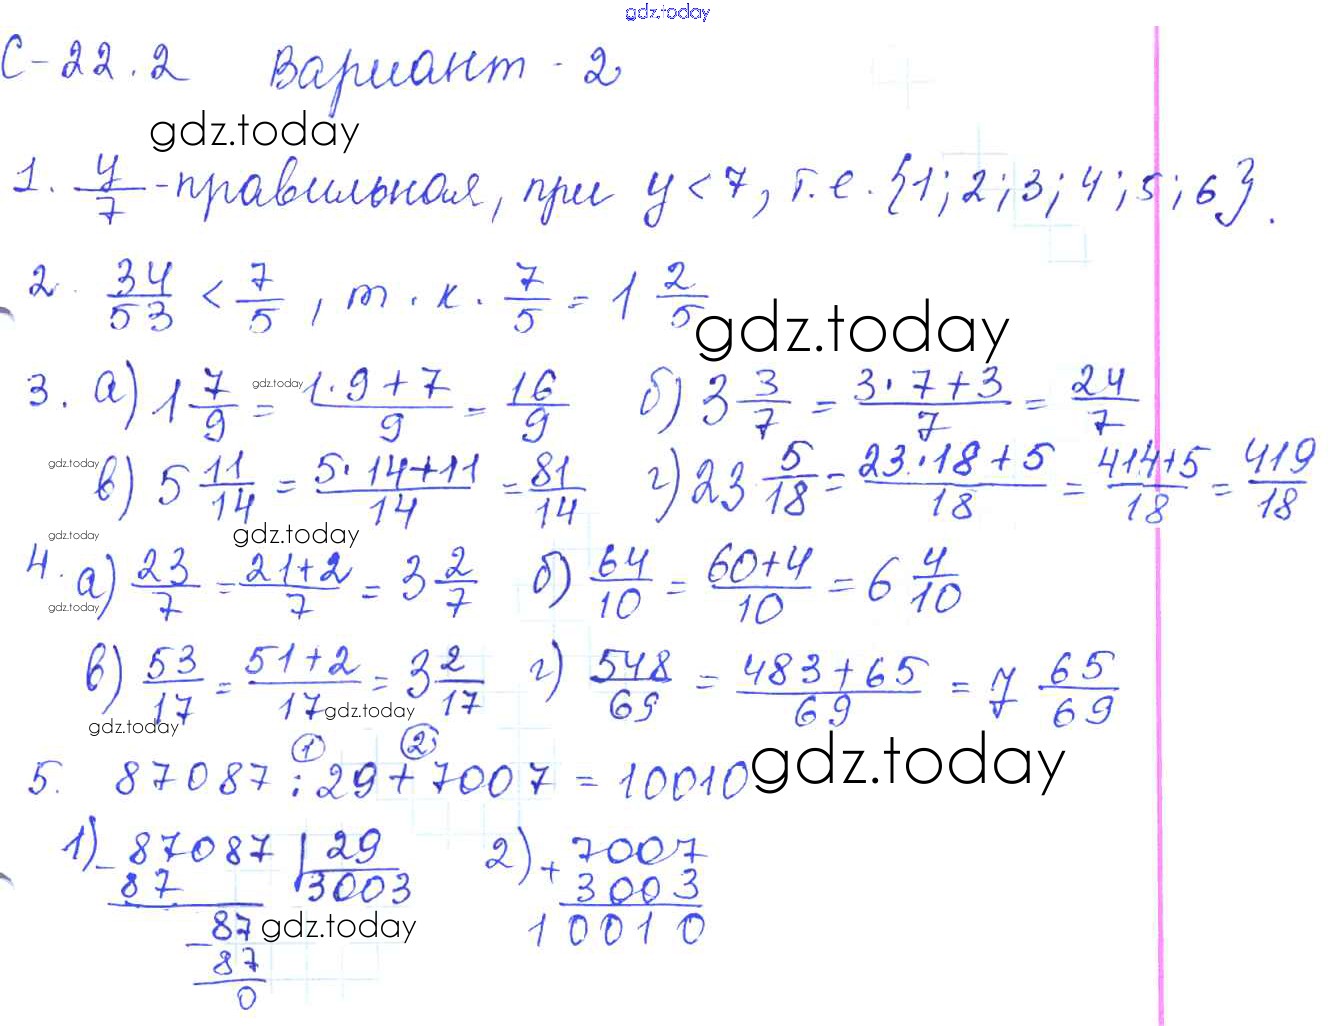 gdz.today
С-22.2 Вариант - 2
gdz.today
1. y/7 - правильная, при y < 7, т.е. {1; 2; 3; 4; 5; 6}.
2. 34/53 < 7/5, т.к. 7/5 = 1 2/5
gdz.today
3. а) 1 7/9 = (1·9+7)/9 = 16/9 б) 3 3/7 = (3·7+3)/7 = 24/7
gdz.today
в) 5 11/14 = (5·14+11)/14 = 81/14 г) 23 5/18 = (23·18+5)/18 = (414+5)/18 = 419/18
gdz.today
gdz.today
gdz.today
4. а) 23/7 = (21+2)/7 = 3 2/7 б) 64/10 = (60+4)/10 = 6 4/10
gdz.today
в) 53/17 = (51+2)/17 = 3 2/17 г) 548/69 = (483+65)/69 = 7 65/69
gdz.today
gdz.today
1 2
5. 87087 : 29 + 7007 = 10010
gdz.today
1) - 87087 | 29 2) + 7007
87 3003 3003
- 87 10010
gdz.today
87
0